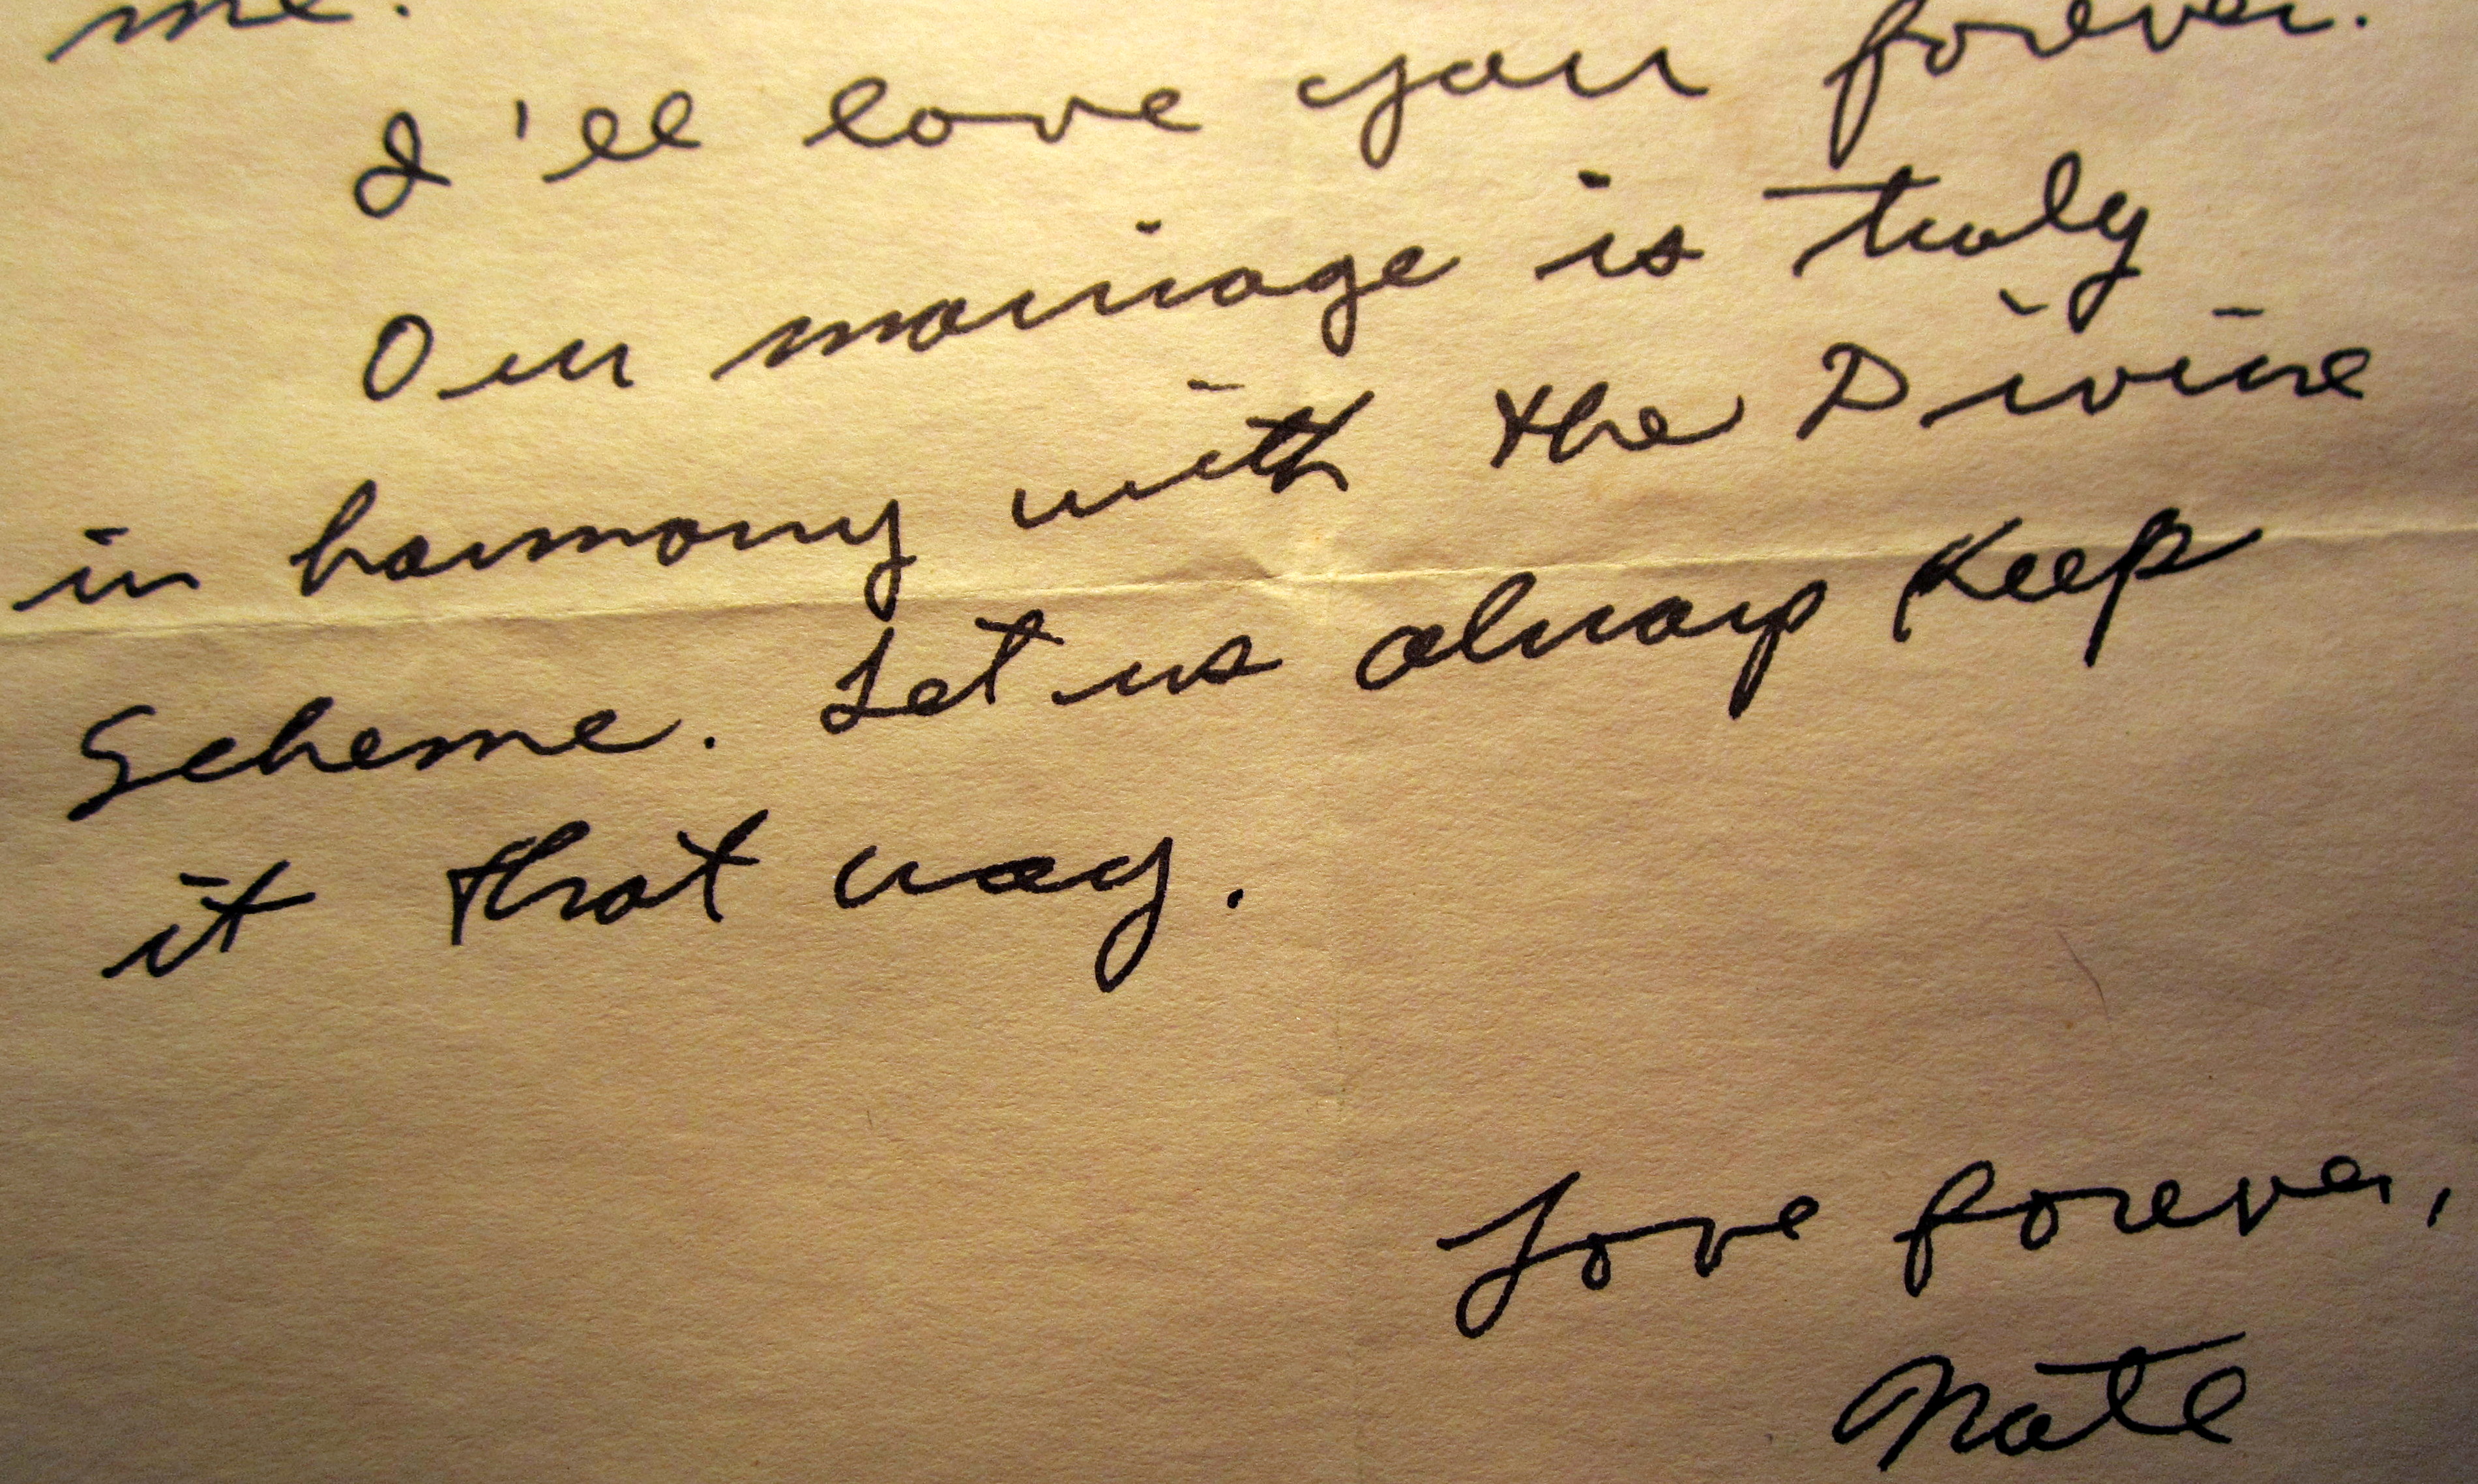 me.
I'll love you forever.
Our marriage is truly
in harmony with the Divine
Scheme. Let us always keep
it that way.
Love forever,
Nate